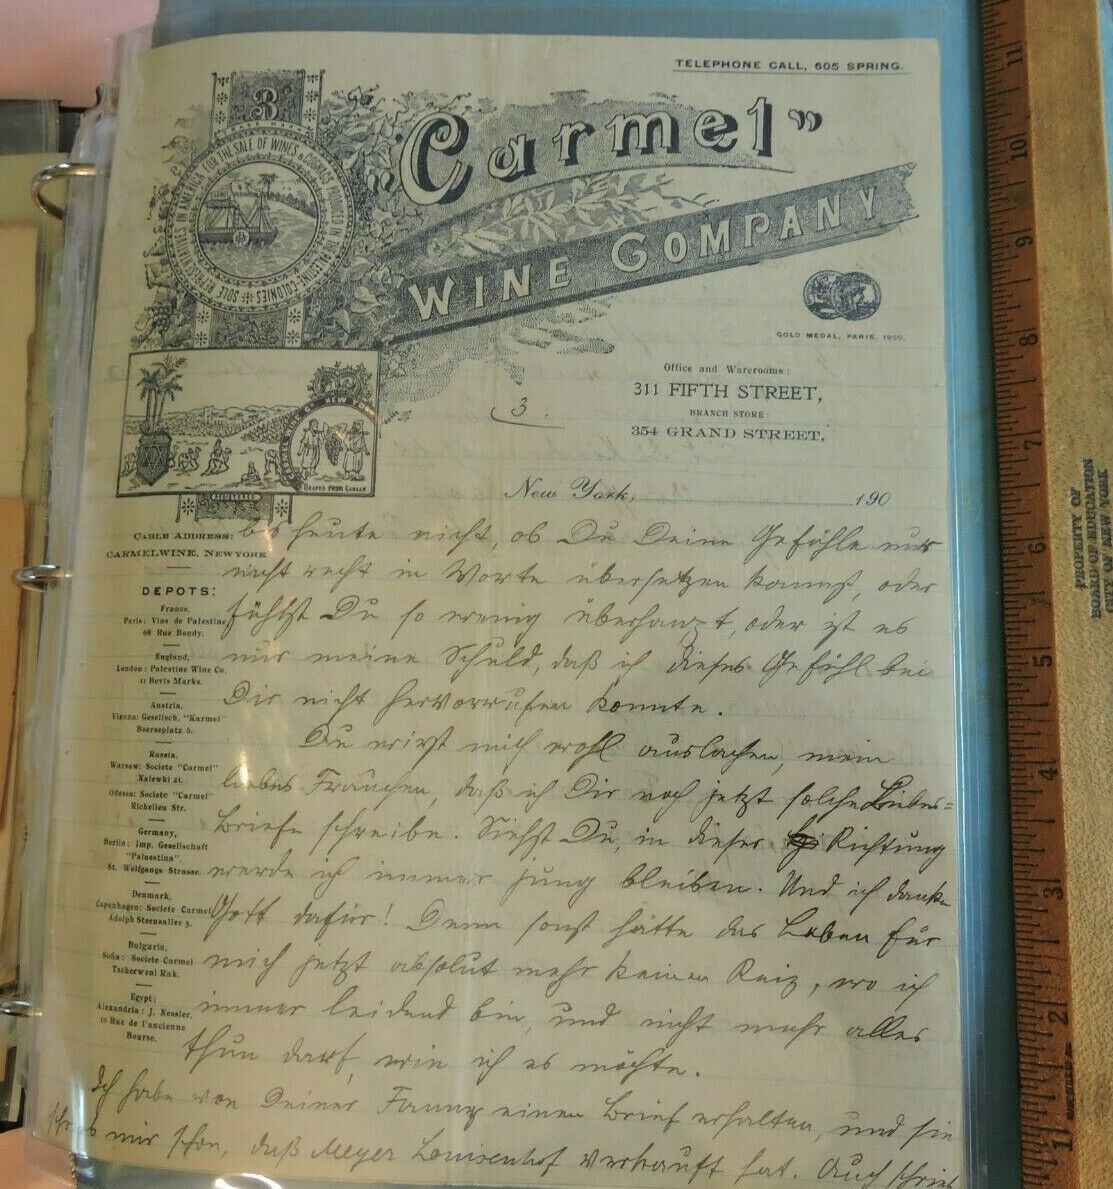 TELEPHONE CALL, 605 SPRING.
"Carmel"
WINE COMPANY
SOLE REPRESENTATIVES IN AMERICA FOR THE SALE OF WINES & COGNACS PRODUCED IN THE PALESTINE COLONIES
GOLD MEDAL, PARIS, 1900.
Office and Warerooms:
311 FIFTH STREET,
BRANCH STORE:
354 GRAND STREET,
3.
GRAPES FROM CANAAN
REGISTERED
New York, 190
CABLE ADDRESS:
CARMELWINE, NEWYORK
DEPOTS:
France,
Paris: Vins de Palestine
68 Rue Bondy.
England,
London: Palestine Wine Co.
11 Bevis Marks.
Austria,
Vienna: Gesellsch. "Karmel"
Boerseplatz 6.
Russia,
Warsaw: Societe "Carmel"
Nalewki 21.
Odessa: Societe "Carmel"
Richelieu Str.
Germany,
Berlin: Imp. Gesellschaft
"Palaestina",
St. Wolfgangs Strasse
Denmark,
Copenhagen: Societe Carmel
Adolph Steensallee 5.
Bulgaria,
Sofia: Societe Carmel
Tscherweni Rak.
Egypt;
Alexandria: J. Nessler,
10 Rue de l'ancienne
Bourse.
bis heute nicht, ob Du Deine Gefühle nur
nicht recht in Worte übersetzen kannst, oder
fühlst Du so wenig überhaupt, oder ist es
nur meine Schuld, daß ich dieses Gefühl bei
Dir nicht hervorrufen konnte.
Du wirst mich wohl auslachen, mein
liebes Frauchen, daß ich Dir noch jetzt solche Liebes=
Briefe schreibe. Siehst Du, in dieser Richtung
werde ich immer jung bleiben. Und ich danke
Gott dafür! Denn sonst hätte das Leben für
mich jetzt absolut mehr keinen Reiz, wo ich
immer leidend bin, und nicht mehr alles
thun darf, wie ich es möchte.
Ich habe von Deiner Fanny einen Brief erhalten, und sie
schrieb mir schon, daß Meyer Louisenhof verkauft hat. Auch schrieb
PROPERTY OF
BOARD OF EDUCATION
CITY OF NEW YORK
11
10
9
8
7
6
5
4
3
2
1